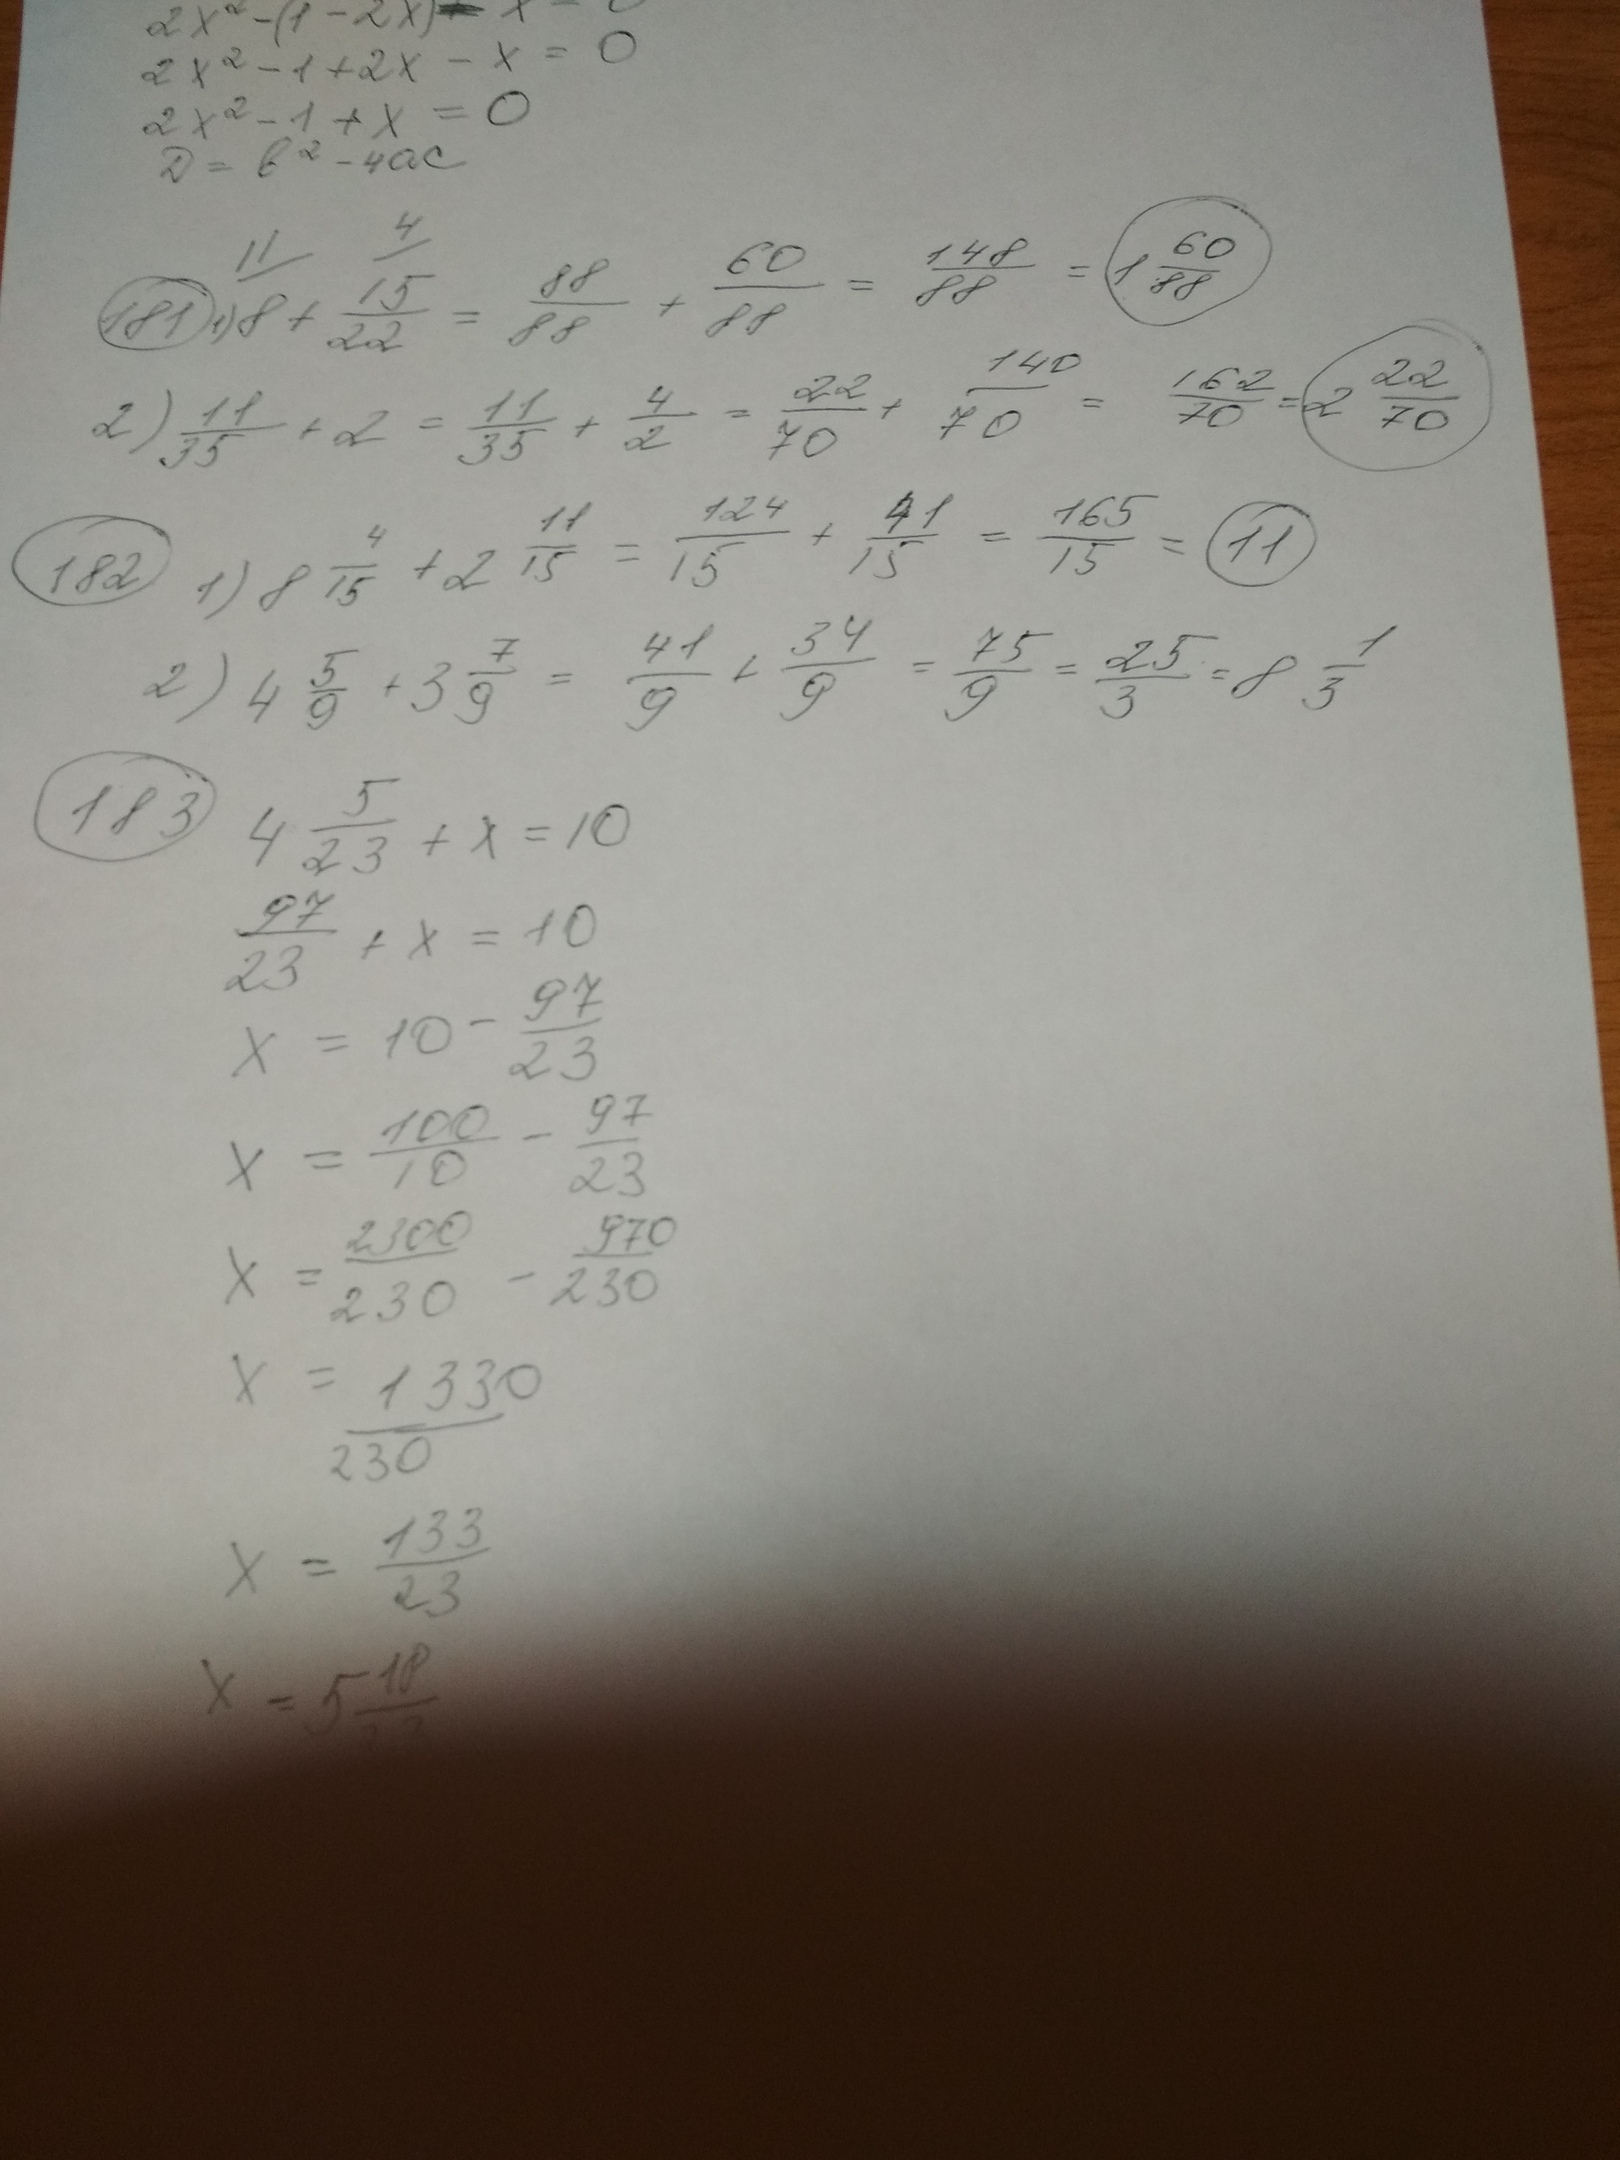 2x² - (1 - 2x) - x = 0
2x² - 1 + 2x - x = 0
2x² - 1 + x = 0
D = b² - 4ac
181 1) 8 + 15/22 = 88/88 + 60/88 = 148/88 = 1 60/88
11 4
2) 11/35 + 2 = 11/35 + 4/2 = 22/70 + 140/70 = 162/70 = 2 22/70
182 1) 8 4/15 + 2 11/15 = 124/15 + 41/15 = 165/15 = 11
2) 4 5/9 + 3 7/9 = 41/9 + 34/9 = 75/9 = 25/3 = 8 1/3
183 4 5/23 + x = 10
97/23 + x = 10
x = 10 - 97/23
x = 100/10 - 97/23
x = 2300/230 - 970/230
x = 1330/230
x = 133/23
x = 5 18/23